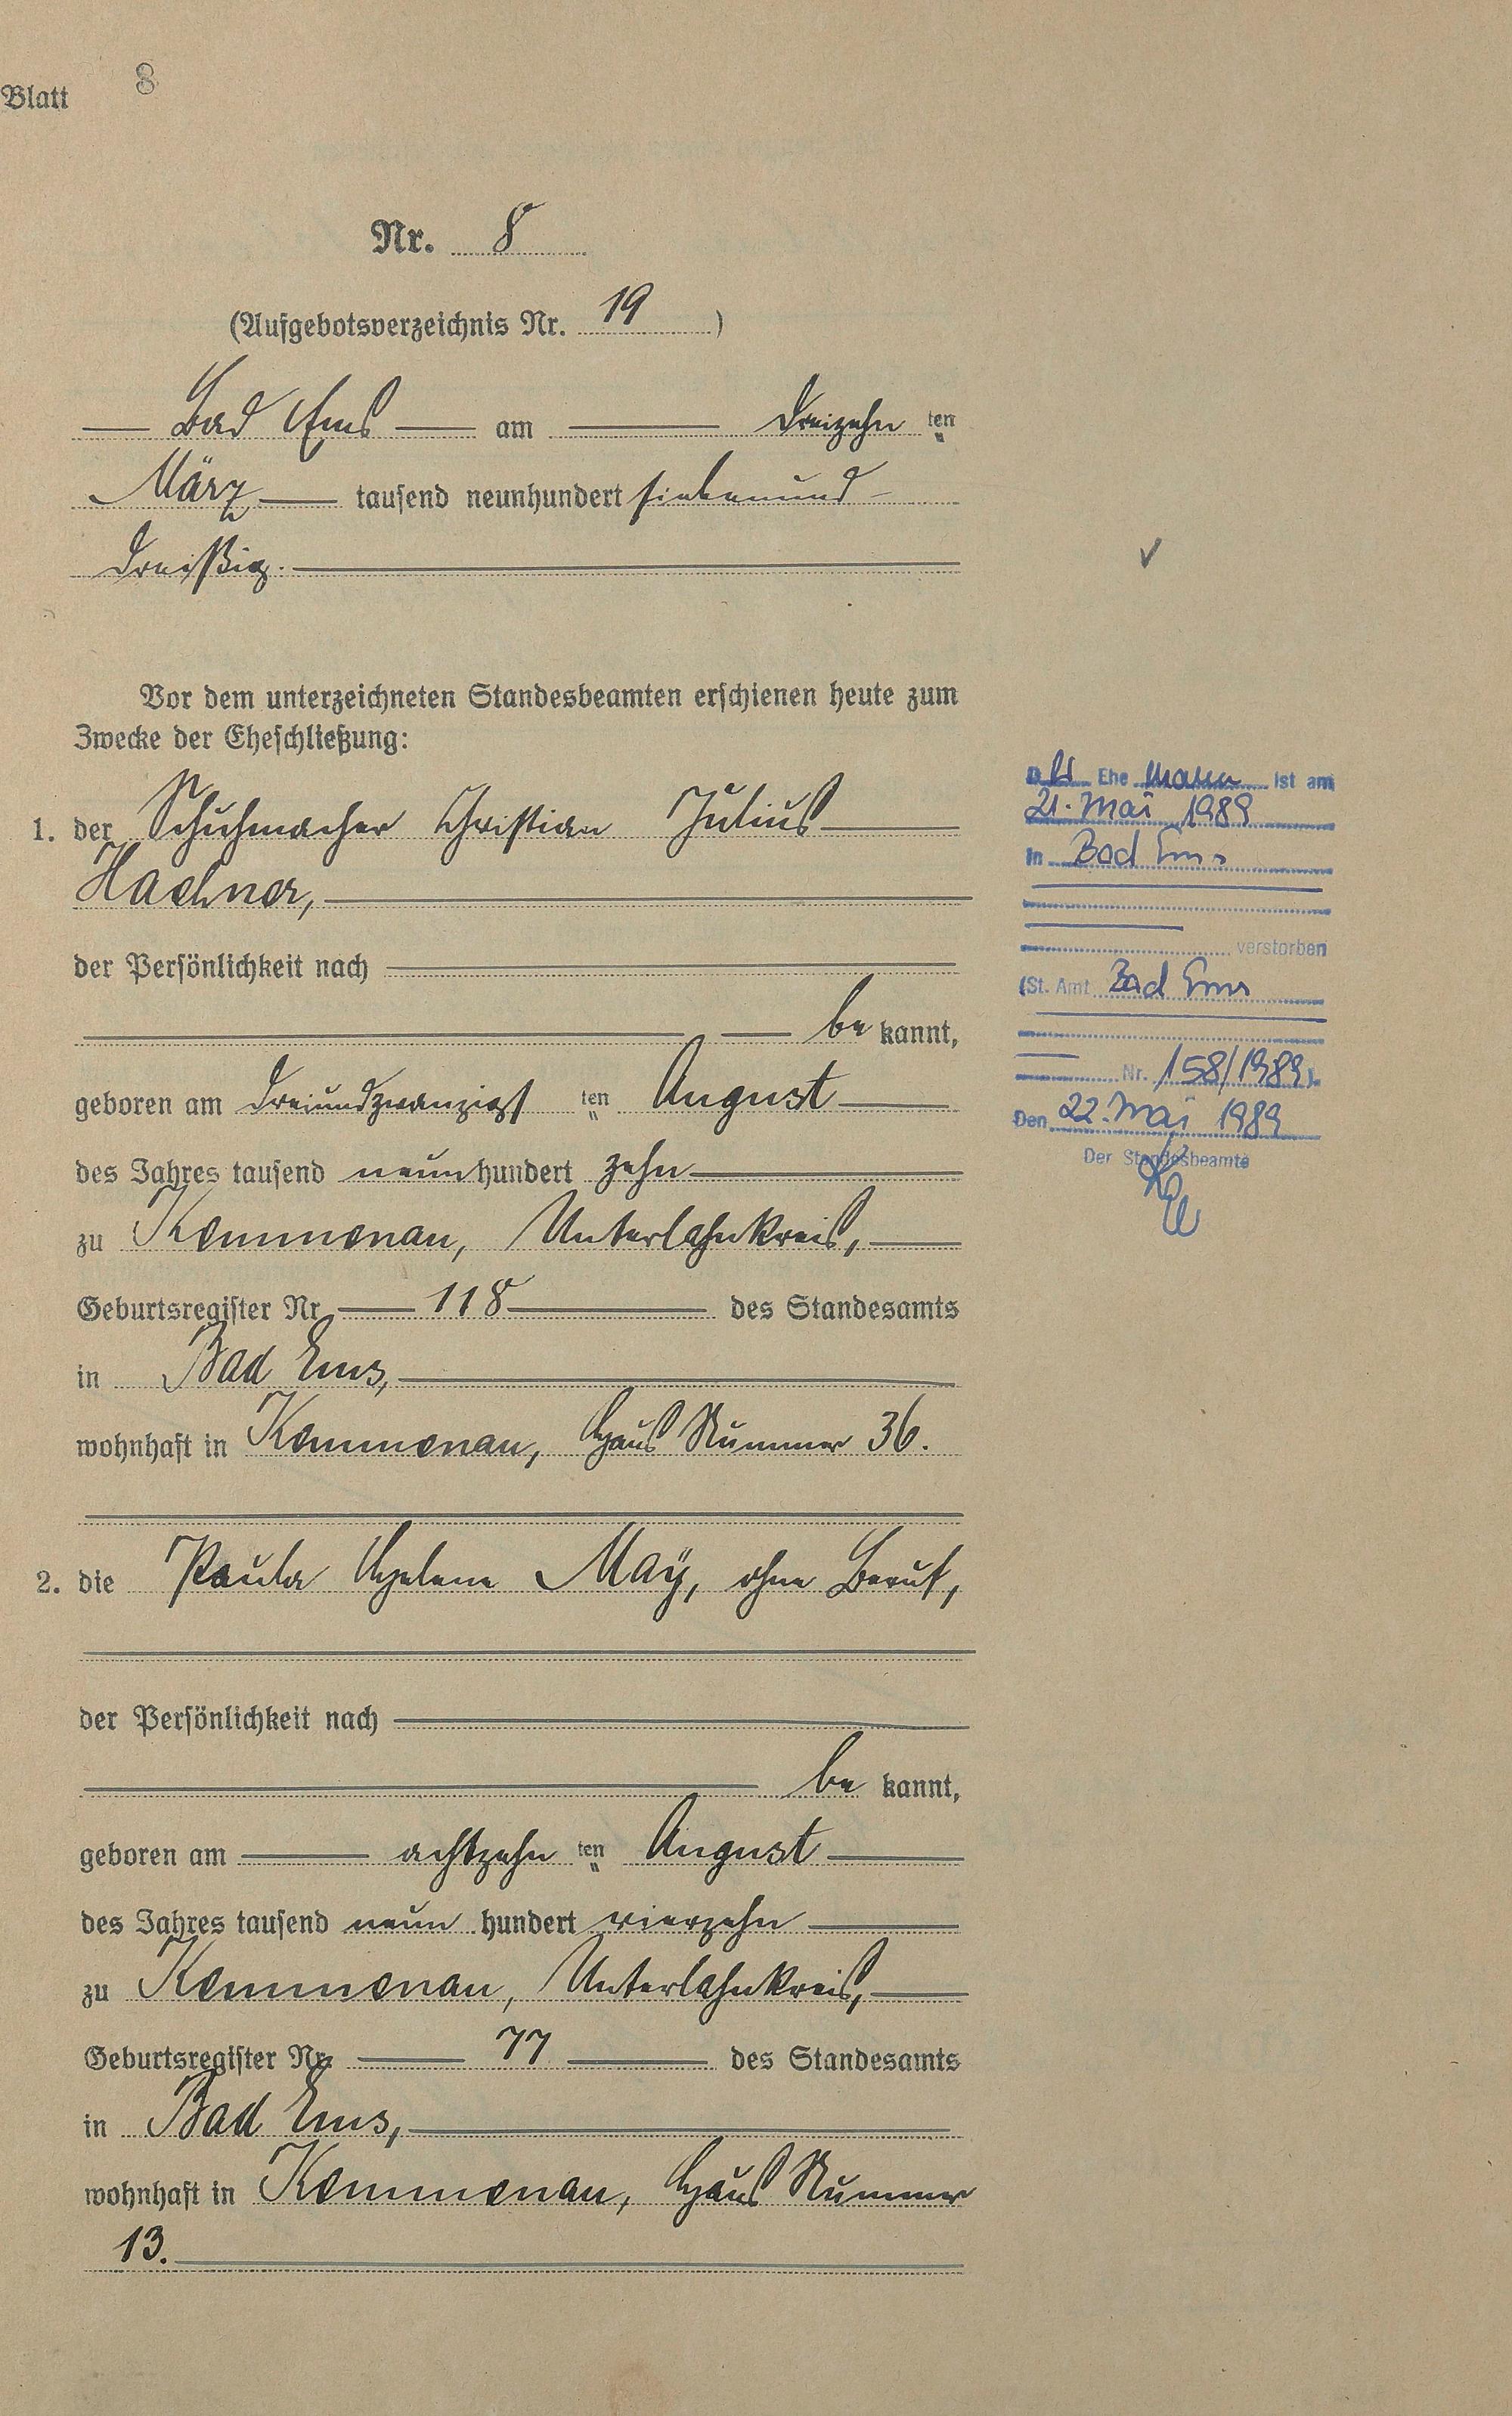 Blatt 8
Nr. 8
(Aufgebotsverzeichnis Nr. 19)
Bad Ems am Dreizehn ten
März tausend neunhundert siebenund-
dreißig.
Vor dem unterzeichneten Standesbeamten erschienen heute zum
Zwecke der Eheschließung:
1. der Schuhmacher Christian Julius
Hachner,
der Persönlichkeit nach
be kannt,
geboren am dreiundzwanzigst ten August
des Jahres tausend neun hundert zehn
zu Kemmenau, Unterlahnkreis,
Geburtsregister Nr. 118 des Standesamts
in Bad Ems,
wohnhaft in Kemmenau, Haus Nummer 36.
2. die Paula Helene Maÿ, ohne Beruf,
der Persönlichkeit nach
be kannt,
geboren am achtzehn ten August
des Jahres tausend neun hundert vierzehn
zu Kemmenau, Unterlahnkreis,
Geburtsregister Nr. 77 des Standesamts
in Bad Ems,
wohnhaft in Kemmenau, Haus Nummer
13.
Der Ehemann ist am
21. Mai 1989
in Bad Ems
verstorben
(St. Amt Bad Ems
Nr. 158/1989).
Den 22. Mai 1989
Der Standesbeamte